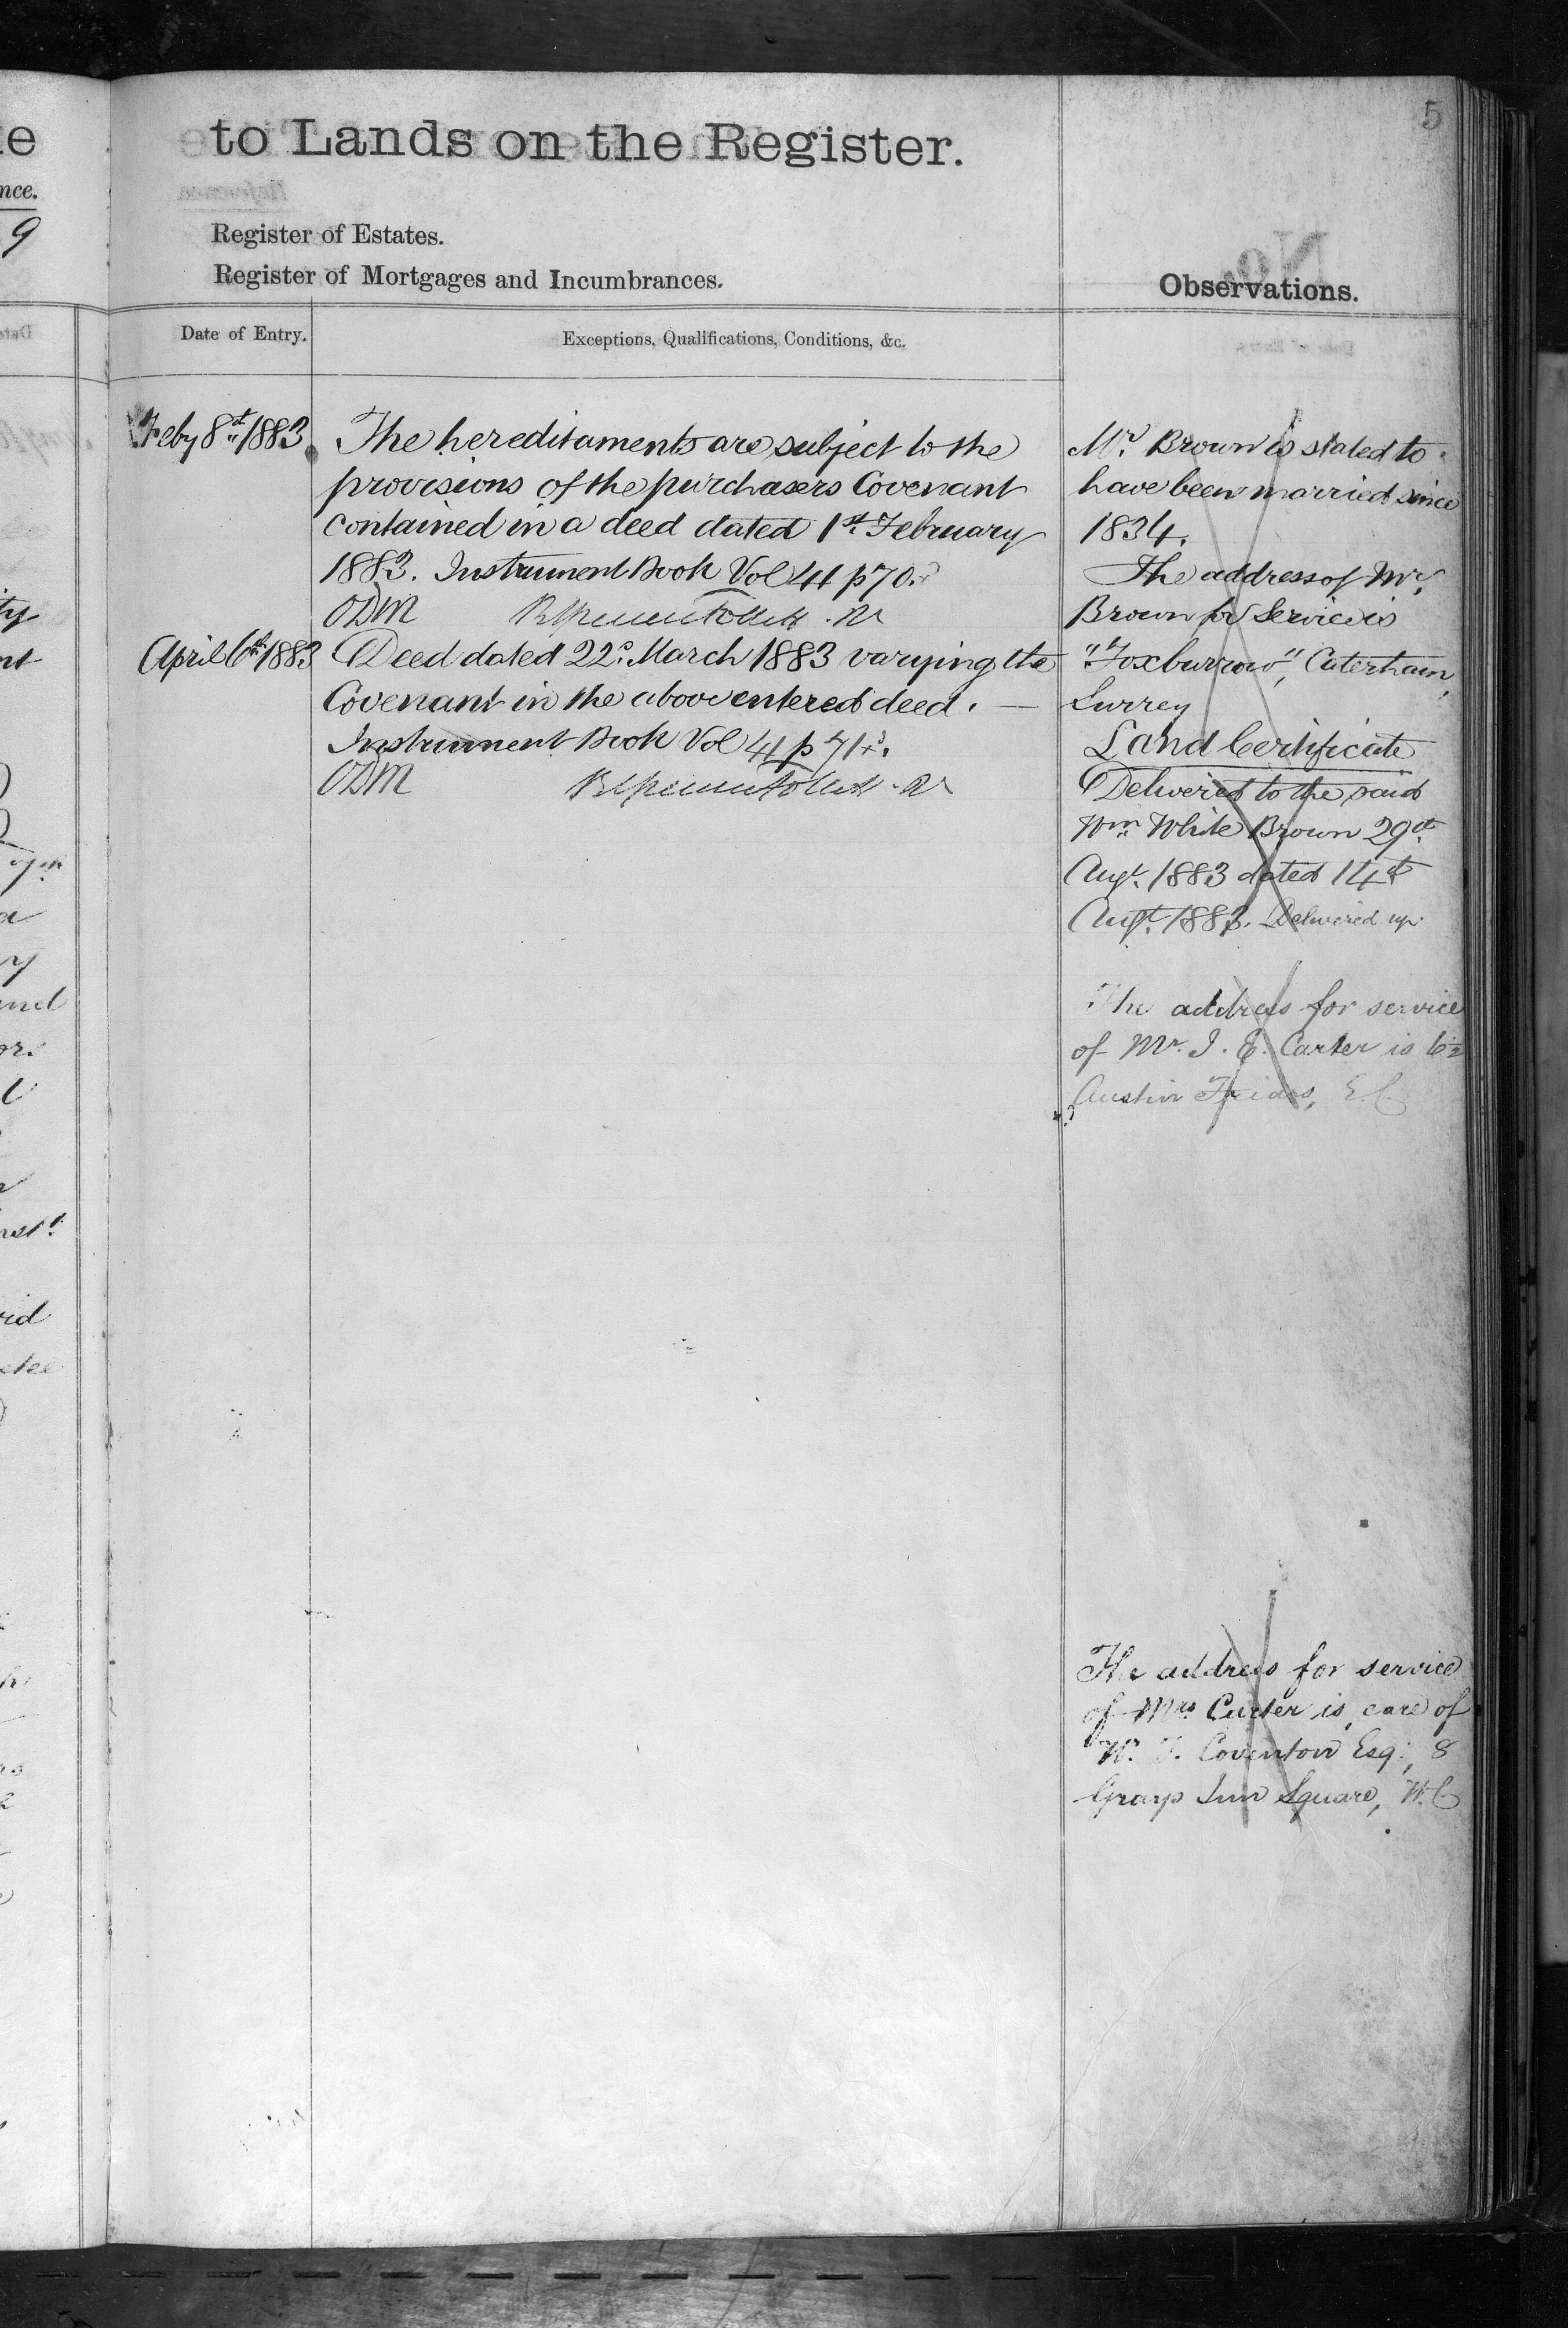 5
to Lands on the Register.
Register of Estates.
Register of Mortgages and Incumbrances.
Observations.
Date of Entry.
Exceptions, Qualifications, Conditions, &c.
Feby 8th 1883
The hereditaments are subject to the
provisions of the purchasers Covenant
contained in a deed dated 1st February
1883. Instrument Book Vol 41 p 70.
ODM
April 6th 1883
Deed dated 22d March 1883 varying the
Covenant in the above entered deed. —
Instrument Book Vol 41 p 71
ODM
Mr Brown is stated to
have been married since
1834.
The address of Mr
Brown for Service is
"Foxburrow", Caterham,
Surrey
Land Certificate
Delivered to the said
Wm White Brown 29th
Augt. 1883 dated 14th
Augt. 1883. Delivered up
The address for service
of Mr. J. E. Carter is 6½
Austin Friars, E.C
The address for service
of Mrs Carter is, care of
W. T. Coventon Esq., 8
Grays Inn Square, W.C